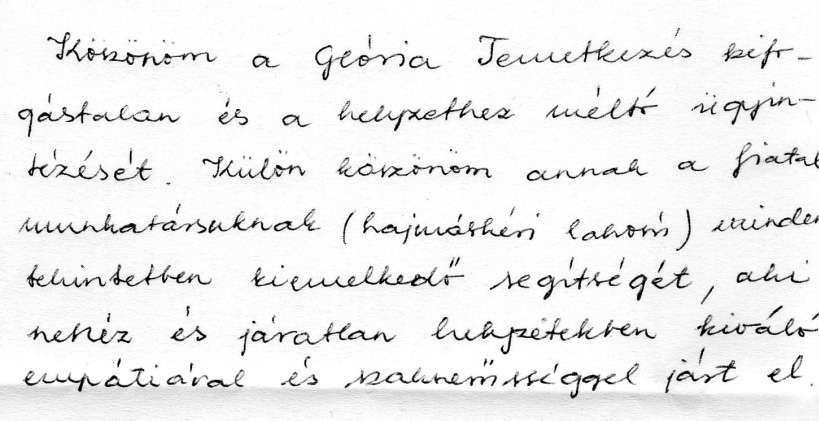 Köszönöm a Glória Temetkezés kifo-
gástalan és a helyzethez méltó ügyin-
tézését. Külön köszönöm annak a fiatal
munkatársuknak (hajmáskéri lakosú) minden
tekintetben kiemelkedő segítségét, aki
nehéz és járatlan helyzetekben kiváló
empátiával és szakszerűséggel járt el.